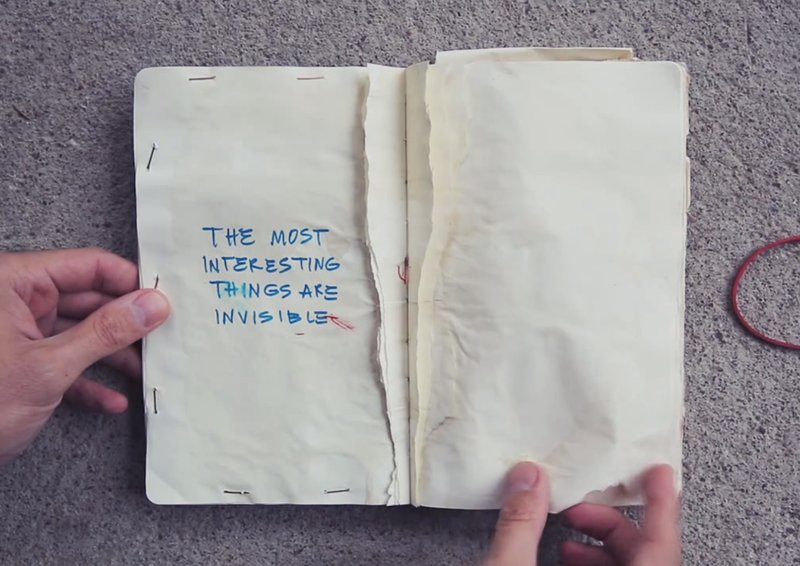 THE MOST
INTERESTING
THINGS ARE
INVISIBLE